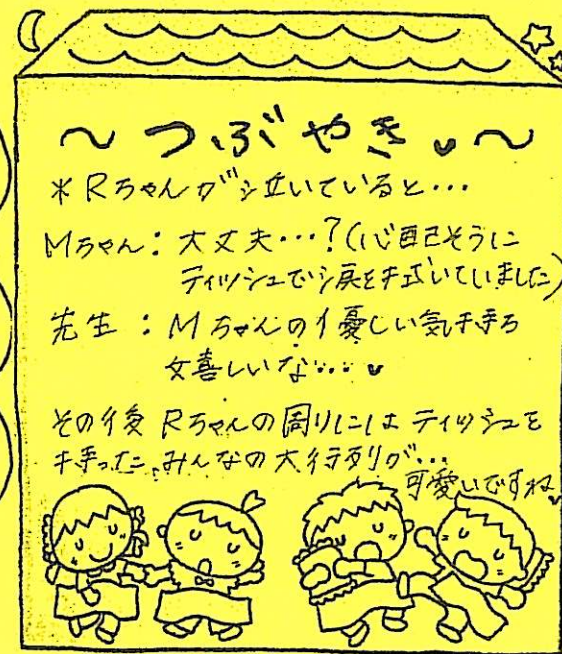 ～つぶやき♥～
*Rちゃんが泣いていると…
Mちゃん：大丈夫…？(心配そうに
ティッシュで涙を拭いていました)
先生：Mちゃんの優しい気持ち
嬉しいな…♥
その後Rちゃんの周りにはティッシュを
持った、みんなの大行列が…
可愛いですね♥